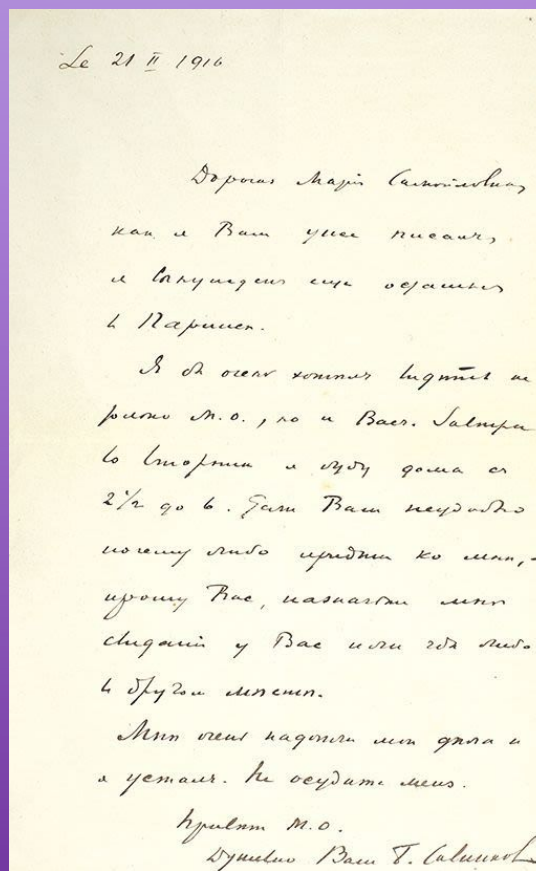 Le 21 II 1916
Дорогая Марія Самойловна,
как я Вам уже писалъ,
я вынужденъ еще остаться
в Парижѣ.
Я бы очень хотѣлъ видѣть не
только М.О., но и Васъ. Завтра
во вторник я буду дома от
2 1/2 до 6. Если Вам неудобно
почему либо придти ко мнѣ, -
прошу Вас, назначьте мнѣ
свиданіе у Вас или гдѣ либо
в другом мѣстѣ.
Мнѣ очень надоѣли мои дѣла и
я усталъ. Не осудите меня.
Привѣт М.О.
Душевно Ваш Б. Савинков